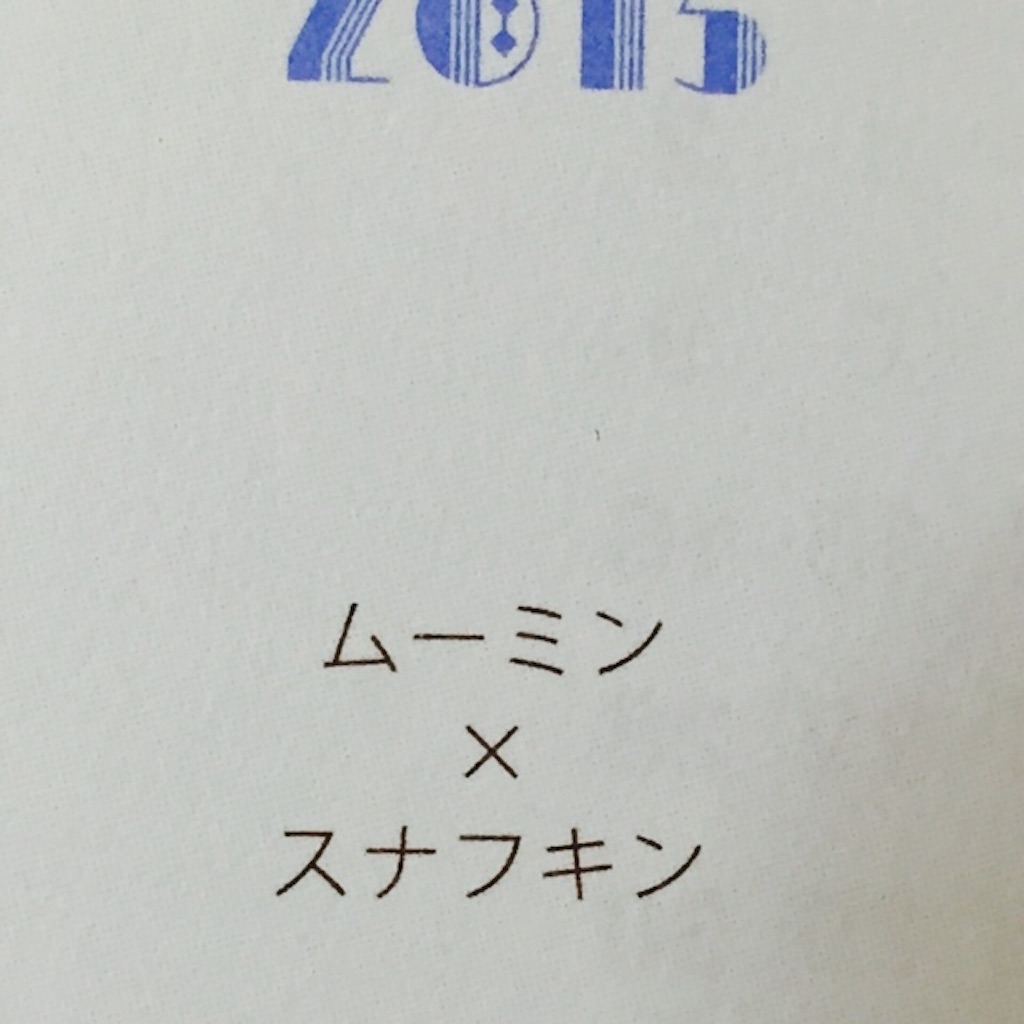 2015
ムーミン
×
スナフキン